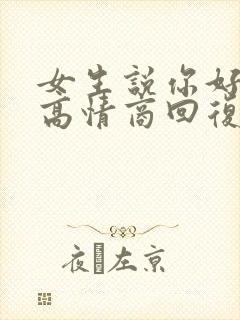 女生說你好
高情商回復
夜 左京